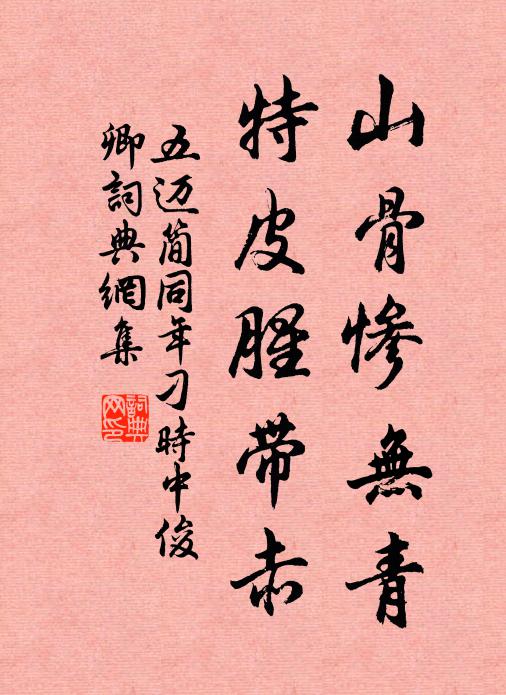 山骨慘無青
特皮腥帶赤
五迈簡同年刁時中俊
卿詞典網集
詞典
网印